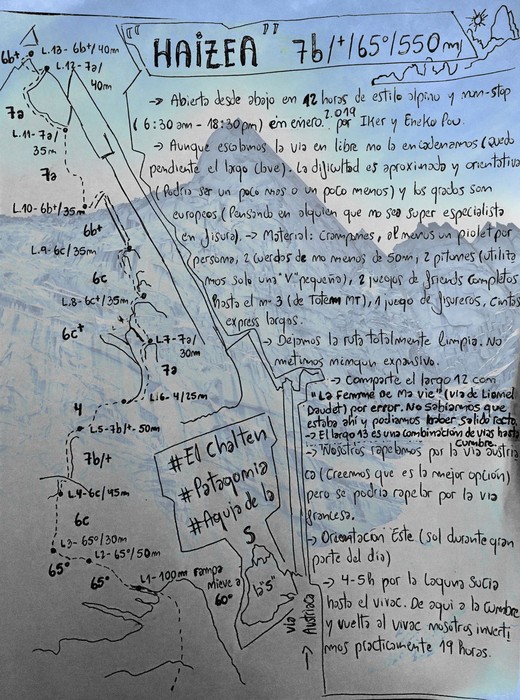 "HAIZEA" 7b/+/65º/550m/
→ Abierta desde abajo en 12 horas de estilo alpino y non-stop
(6:30am - 18:30pm) en enero 2.019 por Iker y Eneko Pou.
→ Aunque escalamos la via en libre no la encadenamos (Quedo
pendiente el largo clave). La dificultad es aproximada y orientativa
(Podria ser un poco mas o un poco menos) y los grados son
europeos (Pensando en alguien que no sea super especialista
en fisura). → Material: Crampones, al menos un piolet por
persona, 2 cuerdas de no menos de 50m, 2 pitones (utiliza
mos solo una "V" pequeña), 2 juegos de friends completos
hasta el nº 3 (de Totem MT), 1 juego de fisureros, cintas
express largas.
→ Dejamos la ruta totalmente limpia. No
metimos ningun expansivo.
→ Comparte el largo 12 con
"La Femme De Ma Vie" (via de Lionel
Daudet) por error. No sabiamos que
estaba ahi y podiamos haber salido recto.
→ El largo 13 es una combinación de vias hasta
cumbre.
→ Nosotros rapelamos por la via austria
ca (Creemos que es la mejor opción)
pero se podria rapelar por la via
francesa.
→ Orientación Este (sol durante gran
parte del dia)
→ 4-5h por la Laguna Sucia
hasta el vivac. De aqui a la cumbre
y vuelta al vivac nosotros inverti
mos practicamente 19 horas.
6b+
L.13- 6b+/40m
L.12-7a/
40m
7a
L.11-7a/
35m
7a
L.10-6b+/35m
6b+
L.9-6c/35m
6c
L.8-6c+/35m
6c+
L.7-7a/
30m
7a
L.6-4/25m
4
L.5-7b/+-50m
7b/+
L.4-6c/45m
6c
L.3-65º/30m
65º
L.2-65º/50m
65º
L.1-100m rampa
nieve a
60º
#El Chalten
#Patagonia
#Aguja de la
S
la "S"
Via
Austriaca